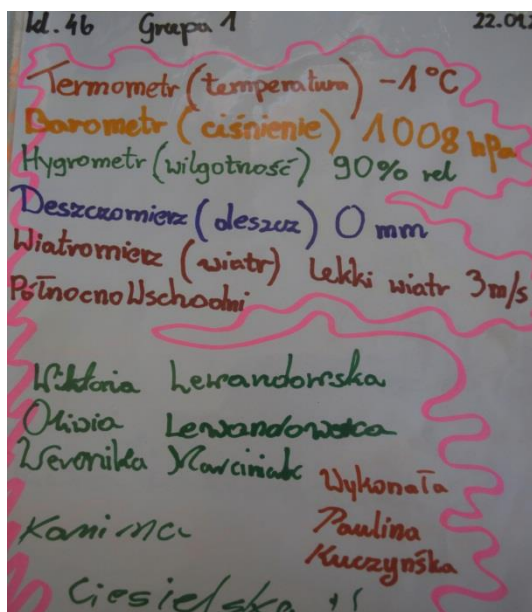 kl. 4b Grupa 1 22.012
Termometr (temperatura) -1°C
Barometr (ciśnienie) 1008 hPa
Hygrometr (wilgotność) 90% rel
Deszczomierz (deszcz) 0 mm
Wiatromierz (wiatr) Lekki wiatr 3m/s
PółnocnoWschodni
Wiktoria Lewandowska
Oliwia Lewandowska
Weronika Marciniak
Wykonała
Paulina
Kuczyńska
Ciesielska